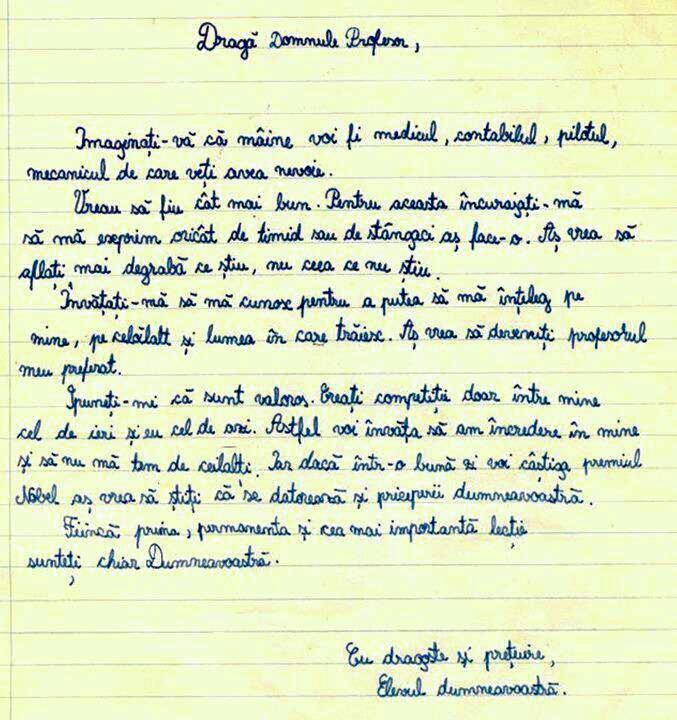 Dragă Domnule Profesor,
Imaginați-vă că mâine voi fi medicul, contabilul, pilotul,
mecanicul de care veți avea nevoie.
Vreau să fiu cât mai bun. Pentru aceasta încurajați-mă
să mă exprim oricât de timid sau de stângaci aș face-o. Aș vrea să
aflați mai degrabă ce știu, nu ceea ce nu știu.
Învățați-mă să mă cunosc pentru a putea să mă înțeleg pe
mine, pe celălalt și lumea în care trăiesc. Aș vrea să deveniți profesorul
meu preferat.
Spuneți-mi că sunt valoros. Creați competiție doar între mine
cel de ieri și eu cel de azi. Astfel voi învăța să am încredere în mine
și să nu mă tem de ceilalți. Iar dacă într-o bună zi voi câștiga premiul
Nobel aș vrea să știți că se datorează și priceperii dumneavoastră.
Fiincă prima, permanenta și cea mai importantă lecție
sunteți chiar Dumneavoastră.
Cu dragoste și prețuire,
Elevul dumneavoastră.